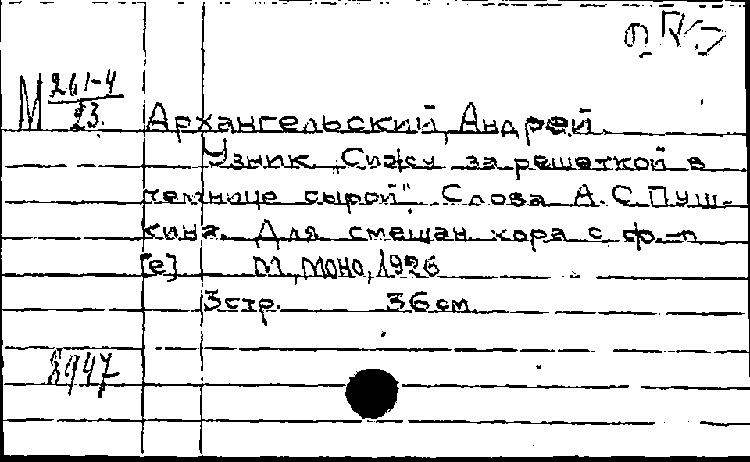 М 261-4
23.
Архангельский, Андрей.
Узник „Сижу за решеткой в
темнице сырой". Слова А.С.Пуш-
кина. Для смешан. хора с ф.-п
[е] М, МОНО, 1926
3 стр. 36 см.
8947